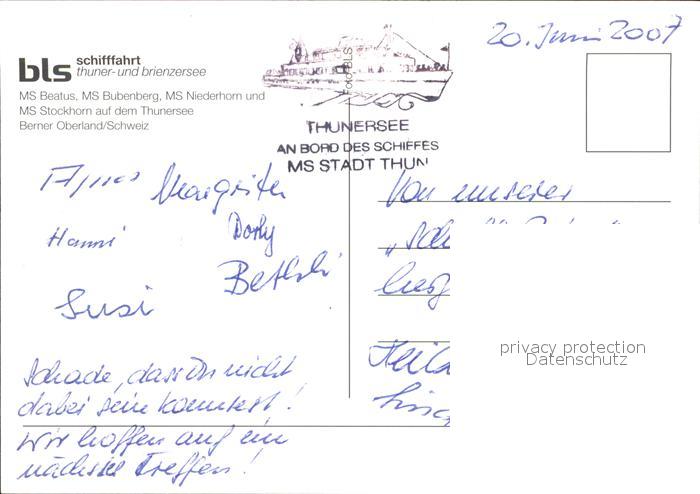 20. Juni 2007
bls schifffahrt
thuner- und brienzersee
MS Beatus, MS Bubenberg, MS Niederhorn und
MS Stockhorn auf dem Thunersee
Berner Oberland/Schweiz
Foto BLS
THUNERSEE
AN BORD DES SCHIFFES
MS STADT THUN
Margriten
Hanni
Dorly
Bethli
Susi
Schade, dass Du nicht
dabei sein konntest!
Wir hoffen auf ein
nächstes Treffen!
Von unserer
privacy protection
Datenschutz